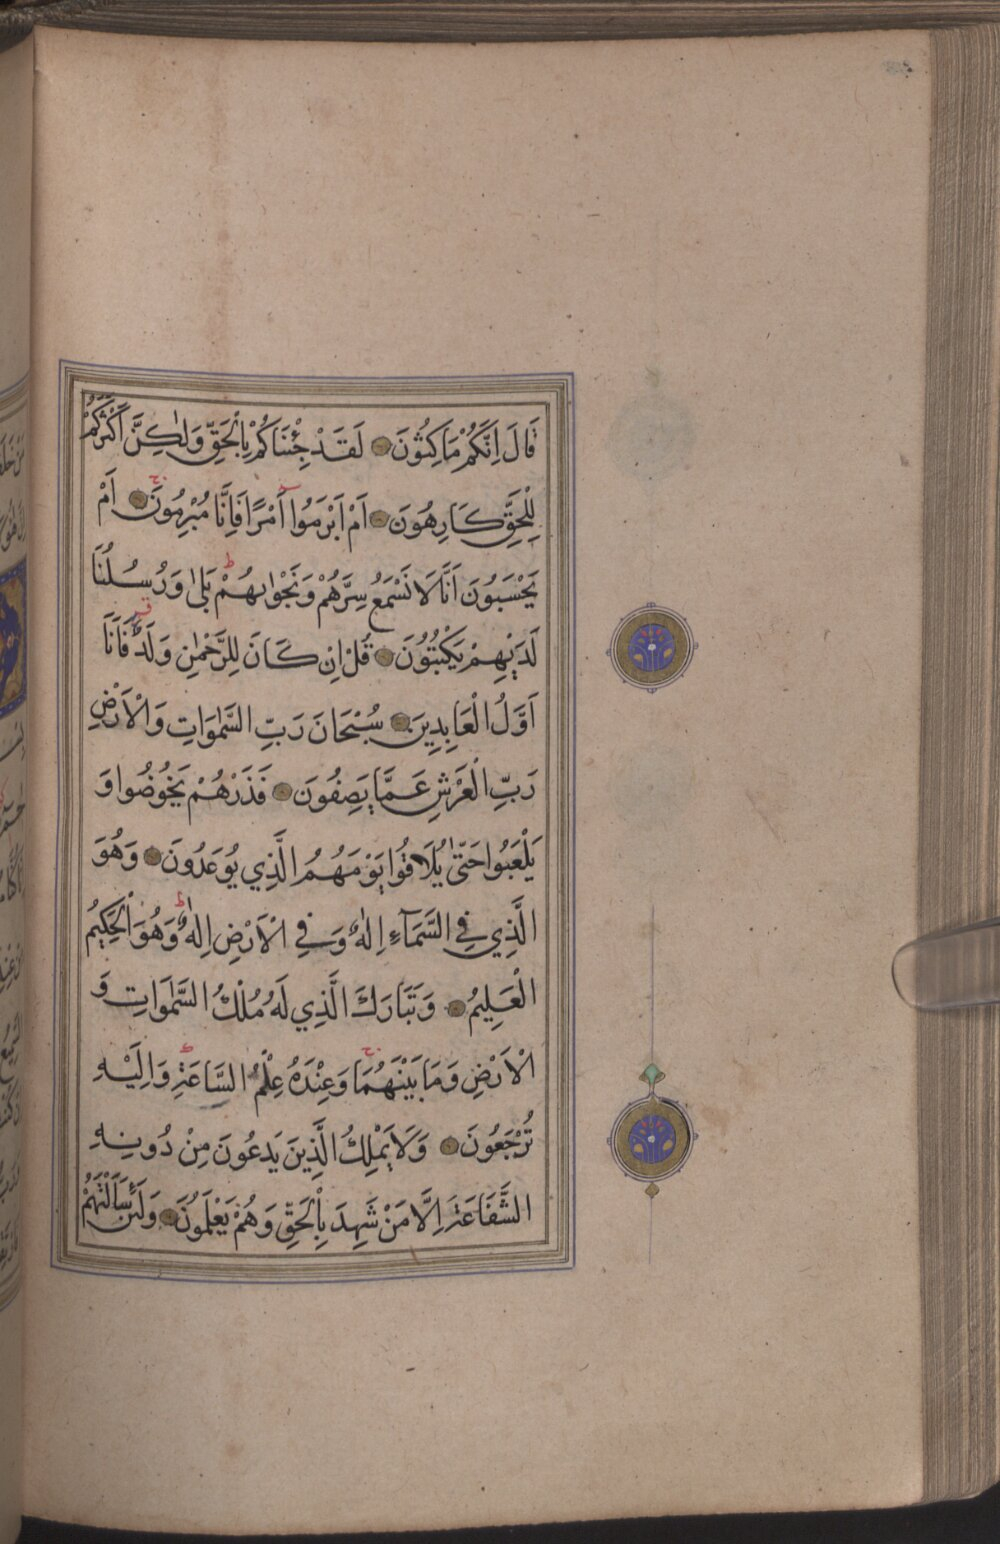 قَالَ اِنَّكُمْ مَاكِثُونَ لَقَدْ جِئْنَاكُمْ بِالْحَقِّ وَلٰكِنَّ اَكْثَرَكُمْ
لِلْحَقِّ كَارِهُونَ اَمْ اَبْرَمُوا اَمْرًا فَاِنَّا مُبْرِمُونَ اَمْ
يَحْسَبُونَ اَنَّا لَا نَسْمَعُ سِرَّهُمْ وَنَجْوٰيهُمْ بَلٰى وَرُسُلُنَا
لَدَيْهِمْ يَكْتُبُونَ قُلْ اِنْ كَانَ لِلرَّحْمٰنِ وَلَدٌ فَاَنَا
اَوَّلُ الْعَابِدِينَ سُبْحَانَ رَبِّ السَّمٰوَاتِ وَالْاَرْضِ
رَبِّ الْعَرْشِ عَمَّا يَصِفُونَ فَذَرْهُمْ يَخُوضُوا وَ
يَلْعَبُوا حَتّٰى يُلَاقُوا يَوْمَهُمُ الَّذِي يُوعَدُونَ وَهُوَ
الَّذِي فِي السَّمَآءِ اِلٰهٌ وَفِي الْاَرْضِ اِلٰهٌ وَهُوَ الْحَكِيمُ
الْعَلِيمُ وَتَبَارَكَ الَّذِي لَهُ مُلْكُ السَّمٰوَاتِ وَ
الْاَرْضِ وَمَا بَيْنَهُمَا وَعِنْدَهُ عِلْمُ السَّاعَةِ وَاِلَيْهِ
تُرْجَعُونَ وَلَا يَمْلِكُ الَّذِينَ يَدْعُونَ مِنْ دُونِهِ
الشَّفَاعَةَ اِلَّا مَنْ شَهِدَ بِالْحَقِّ وَهُمْ يَعْلَمُونَ وَلَئِنْ سَاَلْتَهُمْ